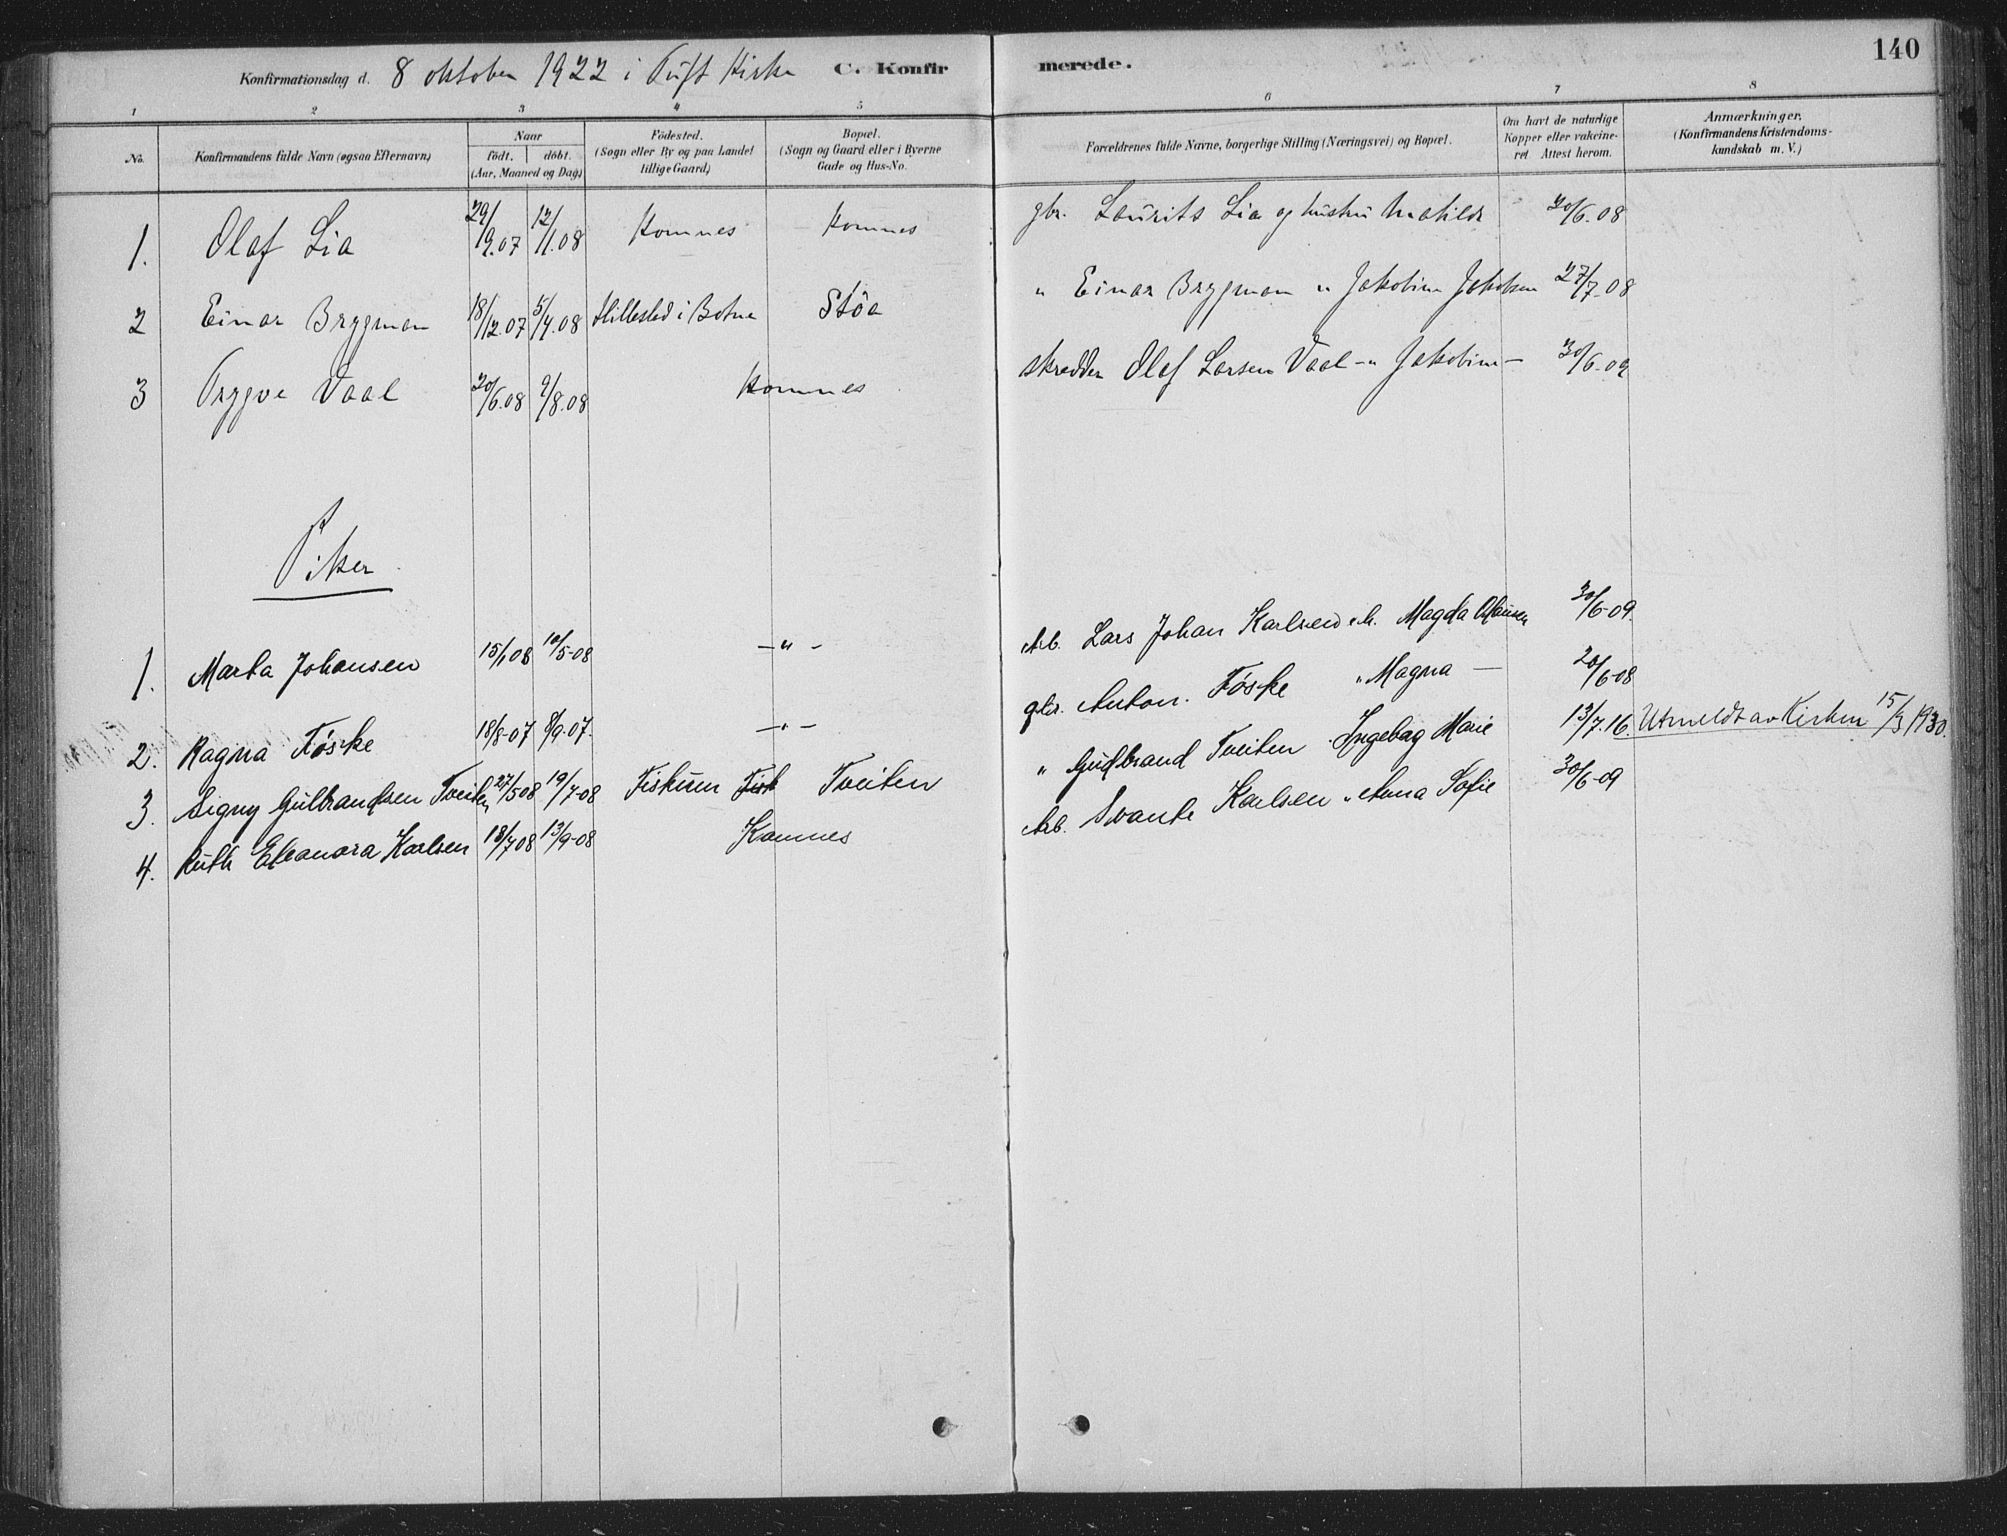 140
Konfirmationsdag d. 8 oktober 1922 i Tuft Kirke C. Konfir merede.
1 2 3 4 5 6 7 8
No. Konfirmandens fulde Navn (ogsaa Efternavn) Naar födt. döbt. (Aar, Maaned og Dag) Födested. (Sogn eller By og paa Landet tillige Gaard) Bopæl. (Sogn og Gaard eller i Byerne Gade og Hus-No. Forældrenes fulde Navne, borgerlige Stilling (Næringsvei) og Bopæl. Om havt de naturlige Kopper eller vakcineret Attest herom. Anmærkninger. (Konfirmandens Kristendomskundskab m. V.)
1. Olaf Lia 29/9.07 12/1.08 Komnes Komnes gbr. Laurits Lia og hustru Matilde 30/6.08
2 Einar Brygman 18/12.07 5/4.08 Hillestad i Botne Støa " Einar Brygman " Jakobine Jakobsen 27/7-08
3 Trygve Vaal 20/6.08 9/8.08 Komnes skredder Olaf Larsen Vaal -" Jakobine - 30/6.09
Piker
1. Marta Johansen 15/1 08 10/5-08 -"- Arb. Lars Johan Karlsen o.h. Magda 30/6-09.
2. Ragna Føske 18/8-07 8/9.07. -"- gbr. Anton. Føske " Magna - 20/6-08
3. Signy Gulbrandsen Tveiten 27/5 08 19/7-08 Fiskum Fisk Tveiten " Gudbrand Tveiten . Ingebog Marie 13/7.16 Utmeldt av Kirken 15/3 1930.
4. Ruth Eleanora Karlsen 18/7 08 13/9-08 Komnes Arb. Svante Karlsen " Anna Sofie 30/6-09